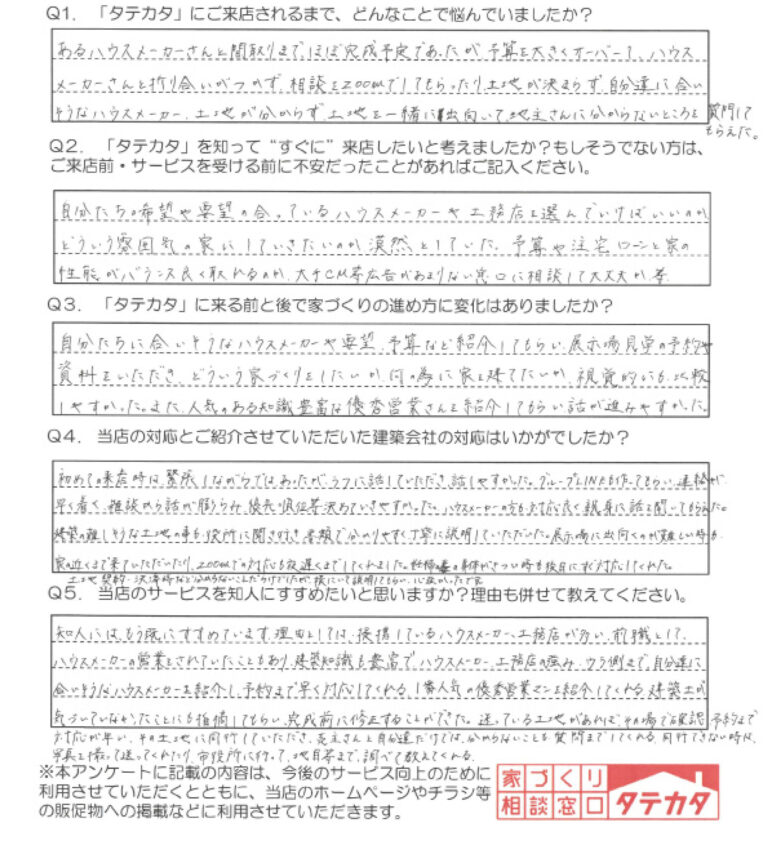 Q1．「タテカタ」にご来店されるまで、どんなことで悩んでいましたか？
あるハウスメーカーさんと間取りまで、ほぼ完成予定であったが、予算を大きくオーバーして、ハウス
メーカーさんと折り合いがつかず、相談をZOOMでしてもらったり、土地が決まらず、自分達に合い
そうなハウスメーカー、土地が分からず、土地を一緒に出向いて、地主さんに分からないところを質問して
もらえた。
Q2．「タテカタ」を知って“すぐに”来店したいと考えましたか？もしそうでない方は、
ご来店前・サービスを受ける前に不安だったことがあればご記入ください。
自分たちの希望や要望の合っているハウスメーカーや工務店を選んでいけばいいのか
どういう雰囲気の家にしていきたいのか漠然としていた。予算や住宅ローンと家の
性能がバランス良く取れるのか、大手CM等広告があまりない窓口に相談して大丈夫か、等
Q3．「タテカタ」に来る前と後で家づくりの進め方に変化はありましたか？
自分たちに合いそうなハウスメーカーや要望、予算など紹介してもらい、展示場見学の予約や
資料をいただき、どういう家づくりをしたいか、何の為に家を建てたいか、視覚的にも比較
しやすかった。また、人気のある知識豊富な優秀営業さんを紹介してもらい話が進みやすかった。
Q4．当店の対応とご紹介させていただいた建築会社の対応はいかがでしたか？
初めての来店時は、緊張しながらではあったが、ラフに話していただき、話しやすかった。グループLINEも作ってもらい、連絡が
早く着く、雑談から話が膨らみ、優先順位等決めていきやすかった。ハウスメーカーの方も対応良く親身に話を聞いてもらえた。
建築の難しそうな土地の事も役所に聞き行き、書類で分かりやすく丁寧に説明していただいた。展示場に出向くのが難しい時も
家の近くまで来ていただいたり、ZOOMでの対応も夜遅くまでしてくれました。妊婦の妻の身体がきつい時も後日に対応してくれた。
土地契約、決済時など分からないことだらけでしたが、横にいて説明してもらい、心強かったです
Q5．当店のサービスを知人にすすめたいと思いますか？理由も併せて教えてください。
知人には、もう既にすすめています。理由としては、提携しているハウスメーカー、工務店が多い、前職として、
ハウスメーカーの営業をされていたこともあり、建築知識も豊富で、ハウスメーカー、工務店の強み、ウラ側まで、自分達に
合いそうなハウスメーカーを紹介し、予約まで早く対応してくれる。1番人気の優秀営業マンを紹介してくれる。建築士が
気づいていなかったことにも指摘してもらい、完成前に修正することができた。迷っている土地があれば、その場で確認、予約まで
対応が早い、その土地に同行していただき、売主さんと自分達だけでは、分からないことも質問までしてくれる。同行できない時は、
写真を撮って送ってくれたり、市役所に行って、地目等まで、調べて教えてくれる。
※本アンケートに記載の内容は、今後のサービス向上のために
利用させていただくとともに、当店のホームページやチラシ等
の販促物への掲載などに利用させていただきます。
家づくり
相談窓口 タテカタ